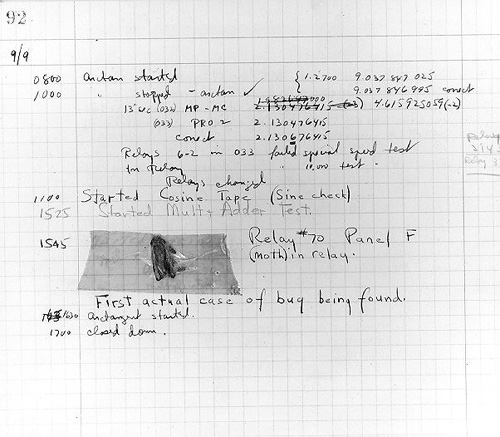 92
9/9
0800 Antan started { 1.2700 9.037 847 025
1000 " stopped - antan ✓ 9.037 846 995 correct
13" uc (032) MP - MC 2.130476415 (-3) 4.615925059(-2)
(033) PRO 2 2.130476415
correct 2.130676415
Relays 6-2 in 033 failed special speed test
in Relay " 10,000 test .
Relays changed
1100 Started Cosine Tape (Sine check)
1525 Started Mult + Adder Test.
1545 Relay #70 Panel F
(Moth) in relay.
First actual case of bug being found.
1630 antangent started.
1700 closed down .